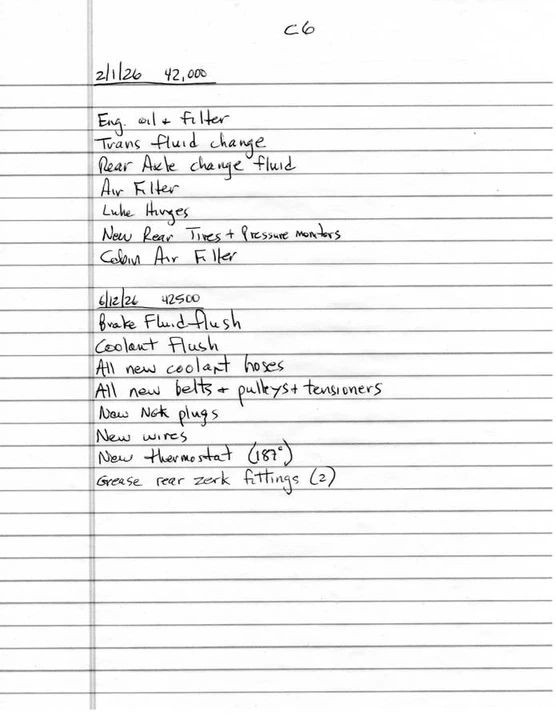 C6
2/1/26 42,000
Eng. oil + filter
Trans fluid change
Rear Axle change fluid
Air Filter
Lube Hinges
New Rear Tires + Pressure monitors
Cabin Air Filter
6/12/26 42500
Brake Fluid flush
Coolant Flush
All new coolant hoses
All new belts + pulleys + tensioners
New NGK plugs
New wires
New thermostat (187°)
Grease rear zerk fittings (2)